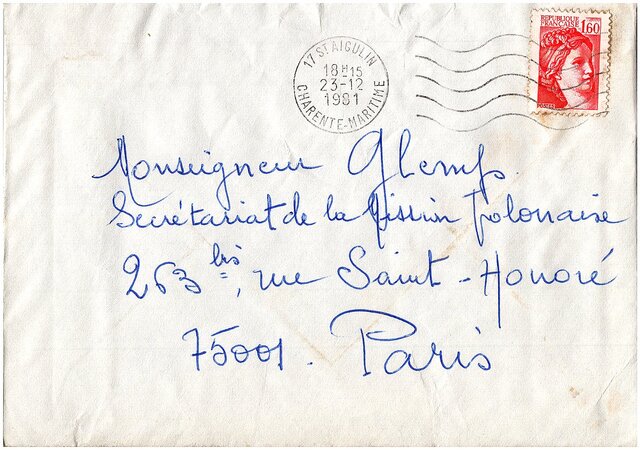 17 ST AIGULIN
18H15
23-12
1981
CHARENTE-MARITIME
REPUBLIQUE
FRANÇAISE
1,60
POSTES
Monseigneur Glemp
Secrétariat de la Mission Polonaise
263 bis, rue Saint-Honoré
75001. Paris